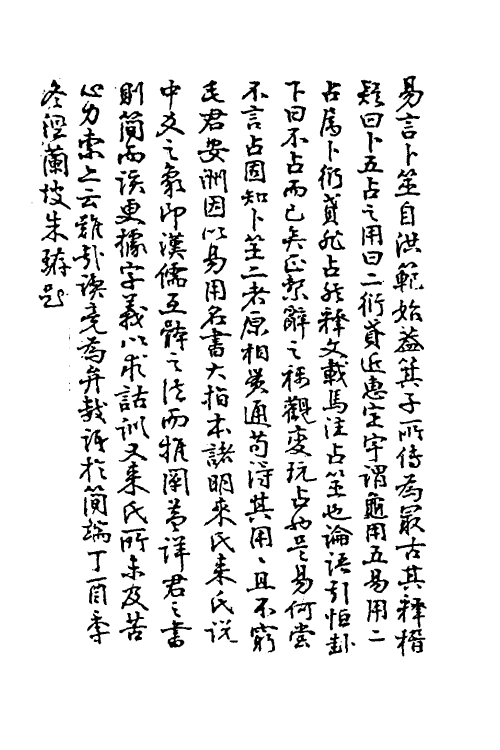 易言卜筮自洪範始蓋箕子所傳為最古其釋稽
疑曰卜五占之用曰二衍貣近惠定宇謂龜用五易用二
占屬卜衍貣非占然釋文載馬注占筮也論語引恒卦
下曰不占而已矣正繫辭之稱觀變玩占也是易何嘗
不言占固知卜筮二者原相貫通苟得其用用且不窮
毛君安洲因以易用名書大指本諸明來氏來氏說
中爻之象即漢儒互體之法而推闡益詳君之書
則簡而該更據字義以求詁訓又來氏所未及苦
心力索上云雖引讀竟為弁數語於簡端丁酉季
冬涇蘭坡朱珔題